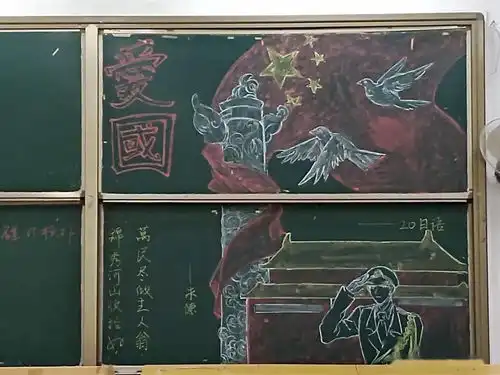 愛國
錦秀河山收拾好
萬民尽做主人翁
——朱德
——20日语